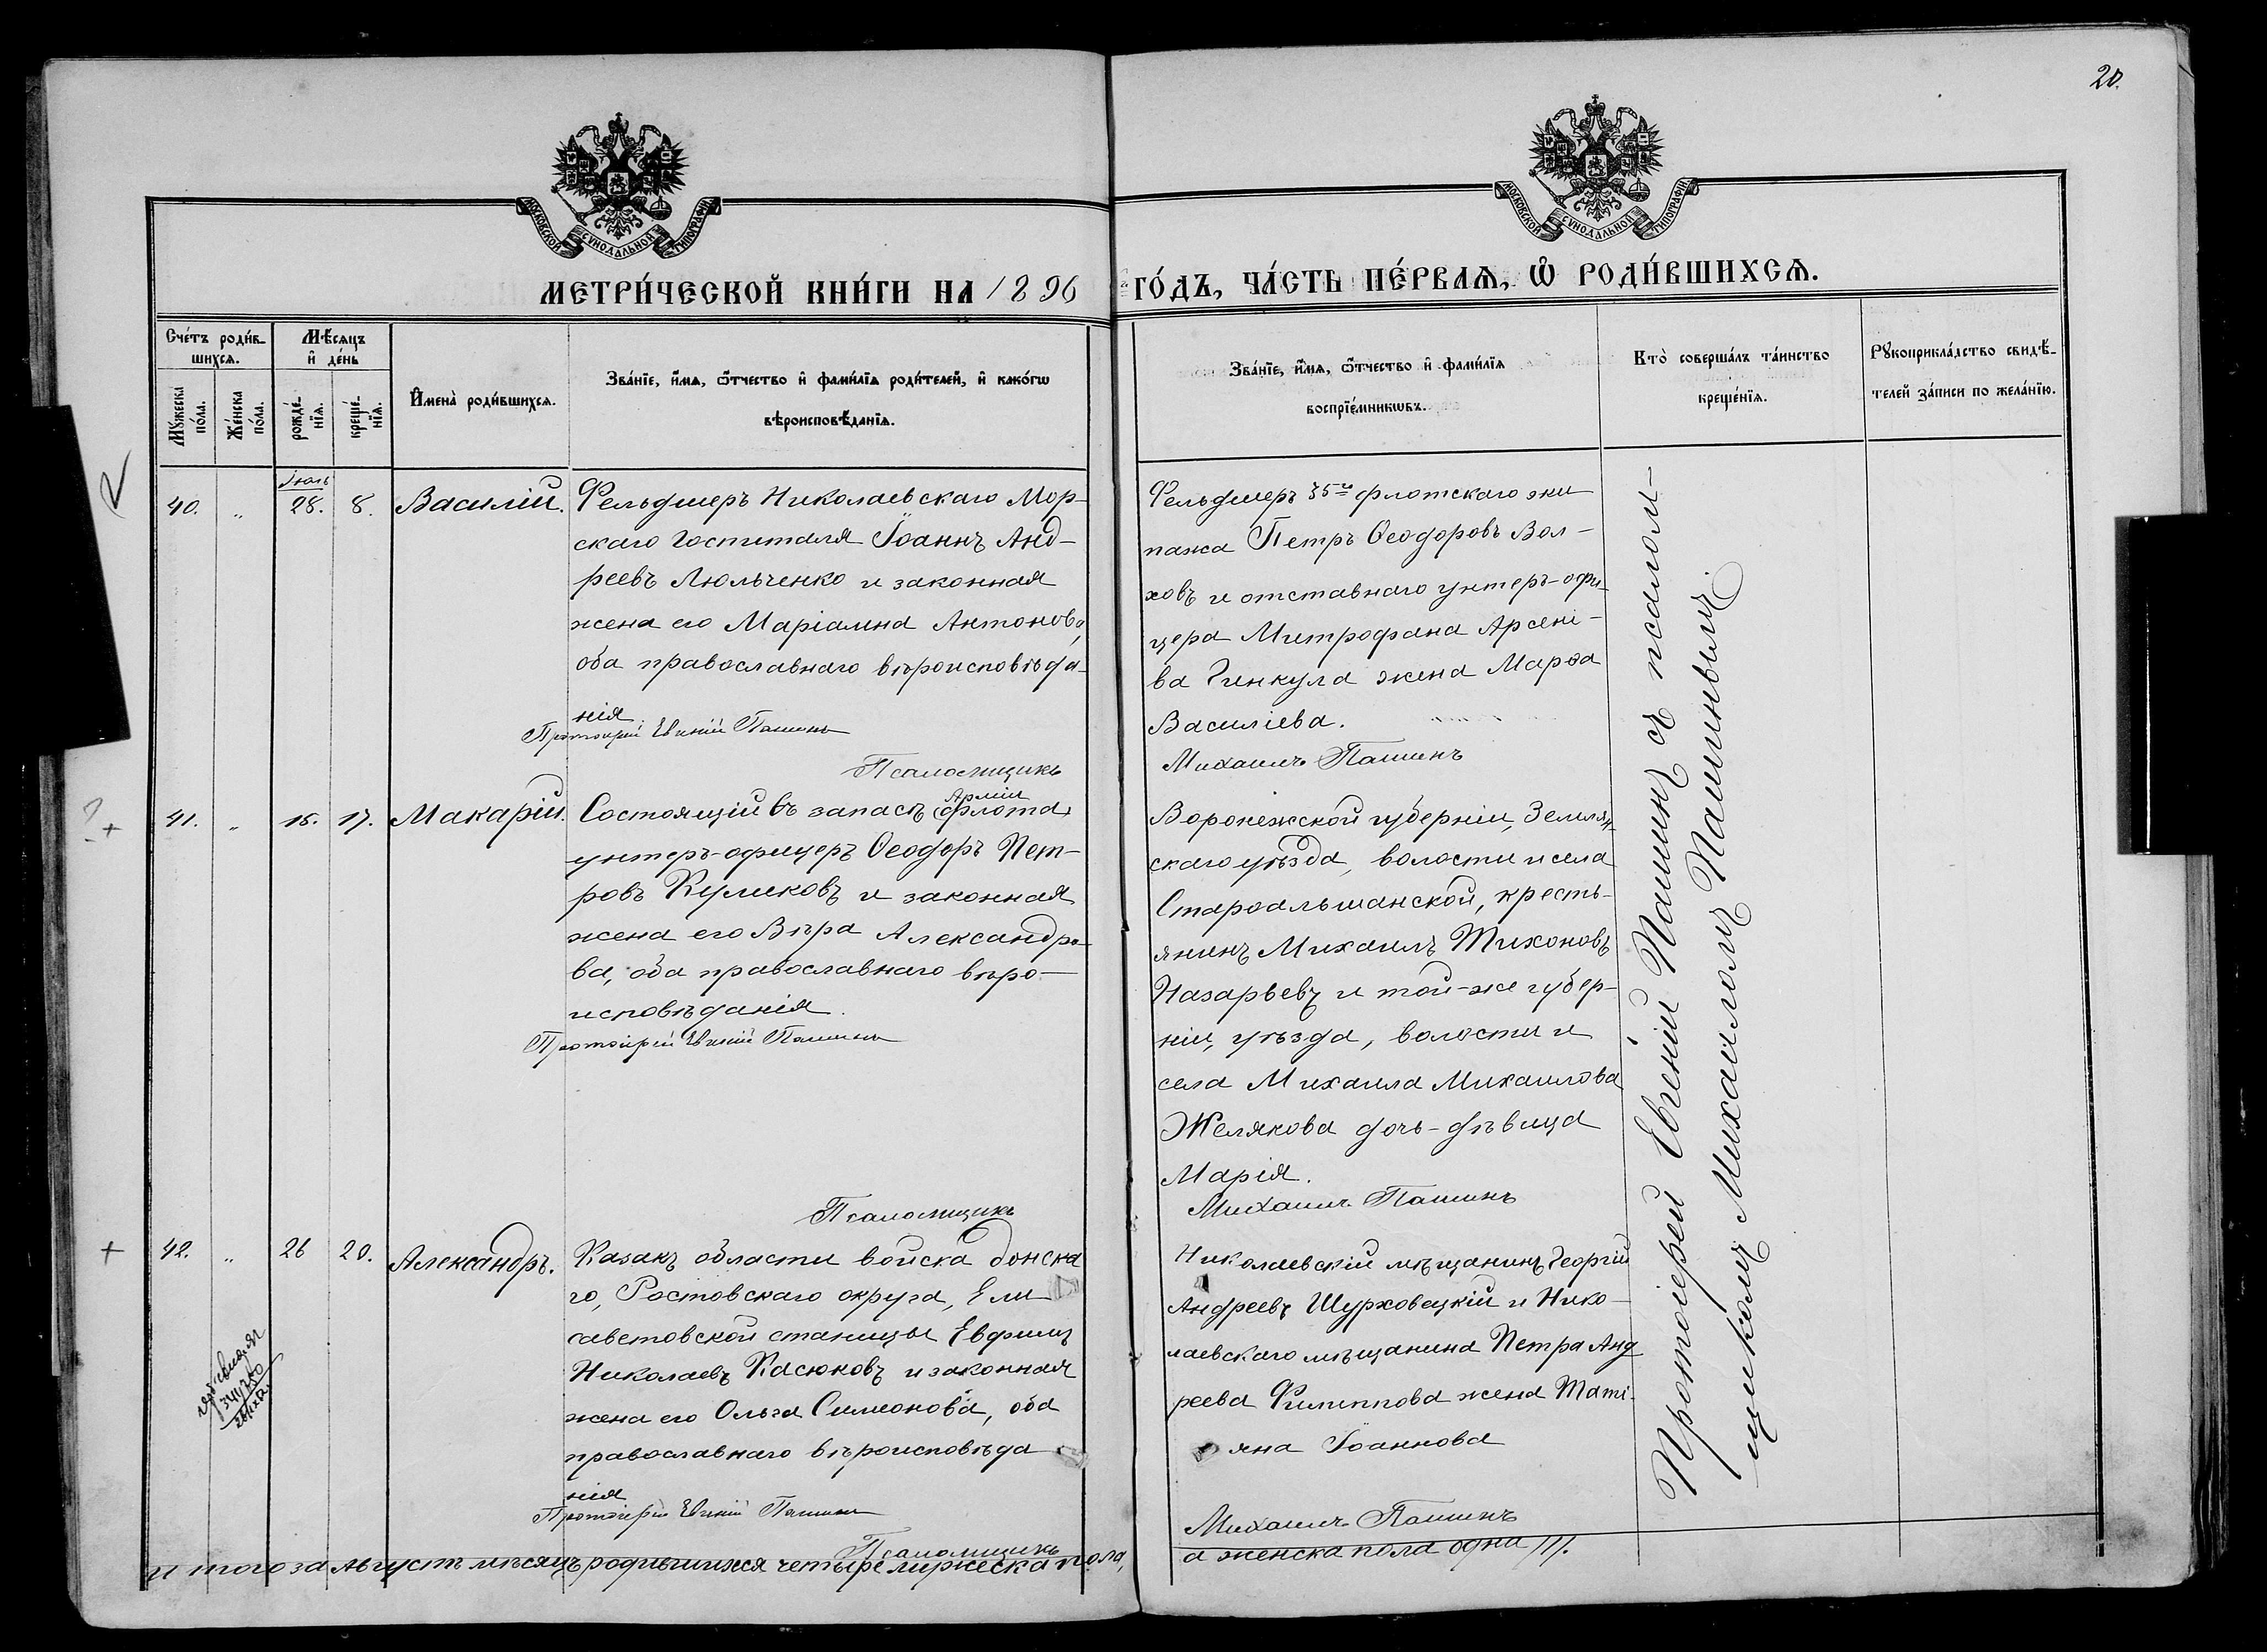 20.
МОСКОВСКОЙ СѴНОДАЛЬНОЙ ТИПОГРАФІИ
МОСКОВСКОЙ СѴНОДАЛЬНОЙ ТИПОГРАФІИ
МЕТРИ́ЧЕСКОЙ КНИ́ГИ НА 1896 ГО́ДЪ, ЧА́СТЬ ПЕ́РВАѦ, Ѡ҆ РОДИ́ВШИХСѦ.
Сче́тъ роди́в-
шихсѧ.
Мꙋ́жеска по́ла.
Же́нска по́ла.
Мѣ́сѧцъ
и҆ де́нь
рожде́-
нїѧ.
креще́-
нїѧ.
И҆мена̀ роди́вшихсѧ.
Зва́нїе, и҆́мѧ, ѻ҆́тчество и҆ фами́лїѧ роди́телей, и҆ како́гѡ
вѣроисповѣ́данїѧ.
Зва́нїе, и҆́мѧ, ѻ҆́тчество и҆ фами́лїѧ
воспрїе́мникѡвъ.
Кто̀ соверша́лъ та́инство
креще́нїѧ.
Рꙋкоприкла́дство свидѣ́-
телей за́писи по жела́нїю.
Іюль
40. „ 28. 8. Василій.
Фельдшеръ Николаевскаго Мор-
скаго Госпиталя Іоаннъ Анд-
реевъ Люльченко и законная
жена его Маріамна Антонова,
оба православнаго вѣроисповѣда-
нія
Протоіерей Евгеній Пашинъ
Псаломщикъ
Фельдшеръ 35го флотскаго эки
пажа Петръ Ѳеодоровъ Вол-
ховъ и отставнаго унтеръ-офи-
цера Митрофана Арсені-
ва Гинкула жена Марѳа
Василіева.
Михаилъ Пашинъ
41. „ 15. 17. Макарій.
Арміи
Состоящій въ запасѣ (флота)
унтеръ-офицеръ Ѳеодоръ Пет-
ровъ Куликовъ и законная
жена его Вѣра Александро-
ва, оба православнаго вѣро-
исповѣданія.
Протоіерей Евгеній Пашинъ
Псаломщикъ
Воронежской губерніи, Землян-
скаго уѣзда, волости и села
Староальшанской, кресть-
янинъ Михаилъ Тихоновъ
Назарьевъ и той-же губер-
ніи, уѣзда, волости и
села Михаила Михаилова
Желякова дочь-дѣвица
Марія.
Михаилъ Пашинъ
42. „ 26 20. Александръ.
Казакъ области войска донска
го, Ростовскаго округа, Ели
саветовской станицы Евфимъ
Николаевъ Касюковъ и законная
жена его Ольга Симеонова, оба
православнаго вѣроисповѣда
нія
Протоіерей Евгеній Пашинъ
Псаломщикъ
Николаевскій мѣщанинъ Георгій
Андреевъ Шурховецкій и Нико-
лаевскаго мѣщанина Петра Анд
реева Филиппова жена Таті-
яна Іоаннова
Михаилъ Пашинъ
Протоіерей Евгеній Пашинъ съ псалом-
щикомъ Михаиломъ Пашинымъ.
Итого за Августъ мѣсяцъ родившихся четыре мужеска пола, а женска пола одна /1/.